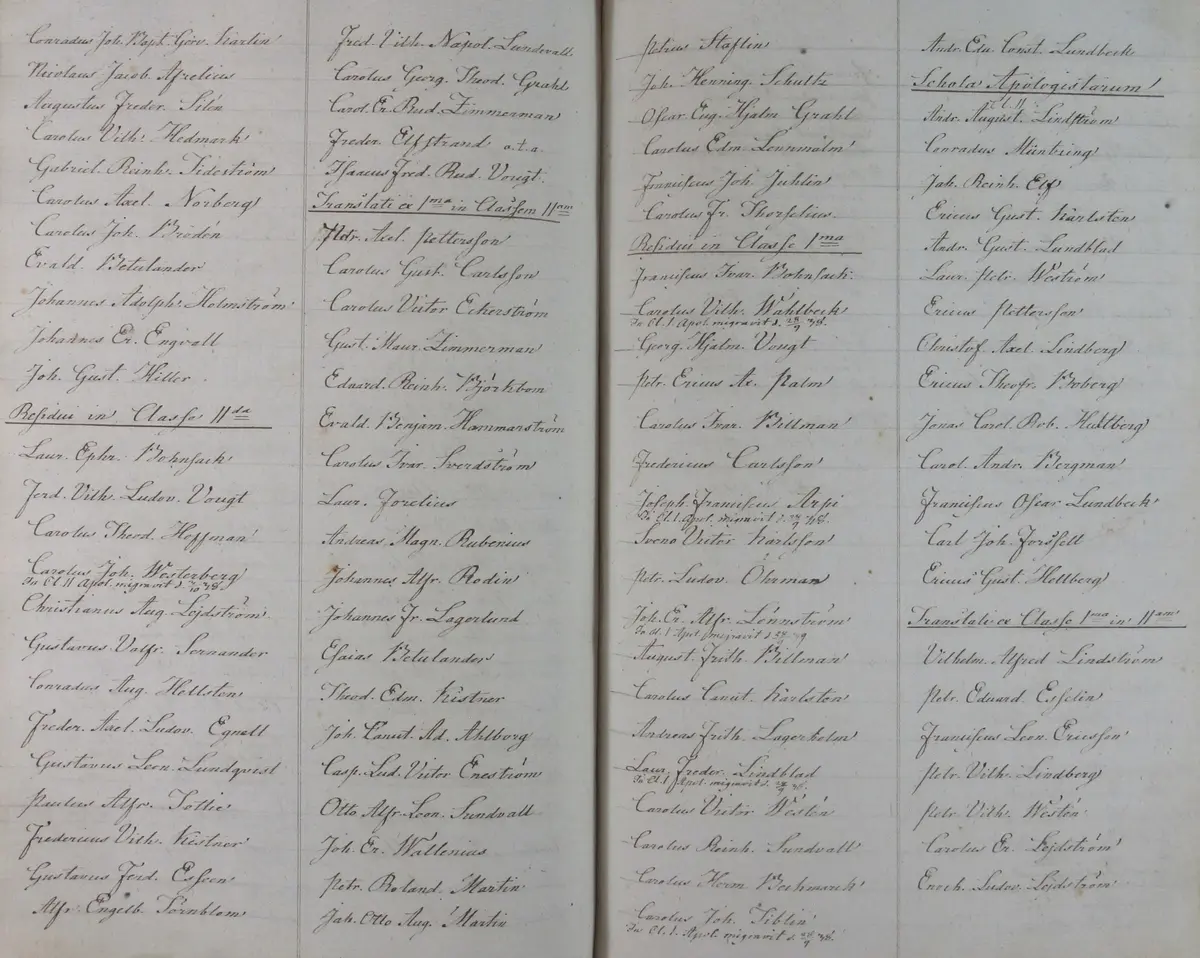 Conradus Joh. Bapt. Göv. Karlin
Nicolaus Jacob Afzelius
Augustus Freder. Silén
Carolus Vilh. Hedmark
Gabriel Reinh. Tideström
Carolus Axel Norberg
Carolus Joh. Bredén
Evald Betulander
Johannes Adolph. Holmström
Johannes Er. Engvall
Joh. Gust. Hiller
Residui in Classe IIda
Laur. Ephr. Bohnsack
Ferd. Vilh. Ludov. Vougt
Carolus Theod. Hoffman
Carolus Joh. Westerberg
In Cl II Apol. migravit d.
Christianus Aug. Lejdström
Gustavus Valfr. Sernander
Conradus Aug. Hellsten
Freder. Axel Ludov. Egnell
Gustavus Leon. Lundqvist
Paulus Alfr. Tottie
Fredericus Vilh. Kistner
Gustavus Ferd. Esseen
Alfr. Engelb. Törnblom
Fred. Vilh. Napol. Lundvall
Carolus Georg. Theod. Grahl
Carol. Er. Rud. Zimmerman
Freder. Elfstrand o.t.a.
Isaacus Fred. Rud. Vougt
Translati ex Ima in Classem IIam
Petr. Axel Pettersson
Carolus Gust. Carlsson
Carolus Victor Eckerström
Gust. Maur. Zimmerman
Eduard. Reinh. Björkbom
Evald. Benjam. Hammarström
Carolus Ivar. Sverdström
Laur. Forelius
Andreas Magn. Rubenius
Johannes Alfr. Rodin
Johannes Fr. Lagerlund
Esaias Betulander
Theod. Edm. Kistner
Joh. Canut. Ad. Ahlborg
Casp. Lud. Victor Eneström
Otto Alfr. Leon. Sundvall
Joh. Er. Wallenius
Petr. Roland Martin
Jah. Otto Aug. Martin
Petrus Staflin
Joh. Henning Schultz
Oscar Eug. Hjalm. Grahl
Carolus Edm. Lennmalm
Franciscus Joh. Juhlin
Carolus Fr. Thorselius
Residui in Classe Ima
Franciscus Ivar. Bohnsack
Carolus Vilh. Wahlbeck
In Cl. I Apol. migravit d. 28/9 48.
Georg. Hjalm. Vougt
Petr. Ericus Ax. Palm
Carolus Ivar. Billman
Fredericus Carlsson
Joseph Franciscus Arpi
In Cl. I Apol. migravit d. 48.
Sveno Victor Karlsson
Petr. Ludov. Öhrman
Joh. Er. Alfr. Lönnström
In Cl. I Apol. migravit d.
August. Frith. Billman
Carolus Canut. Karlsten
Andreas Frith. Lagerholm
Laur. Freder. Lindblad
In Cl. I Apol. migravit d. 28/9 48.
Carolus Victor Westén
Carolus Reinh. Sundvall
Carolus Herm. Beckmarck
Carolus Joh. Tiblin
In Cl. I. Apol. migravit d. 28/9 48.
Andr. Edu. Const. Lundbeck
Schola Apologistarum
Cl. II
Andr. August. Lindström
Conradus Müntzing
Jah. Reinh. Elf
Ericus Gust. Karlsten
Andr. Gust. Lundblad
Laur. Petr. Weström
Ericus Pettersson
Christof. Axel Lindberg
Ericus Theofr. Boberg
Jonas Carol. Rob. Hultberg
Carol. Andr. Bergman
Franciscus Oscar Lundbeck
Carl Joh. Forssell
Ericus Gust. Hellberg
Translati ex Classe Ima in IIam
Vilhelm. Alfred Lindström
Petr. Eduard. Esselin
Franciscus Leon. Ericsson
Petr. Vilh. Lindberg
Petr. Vilh. Westén
Carolus Er. Lejdström
Enoch. Ludov. Lejdström